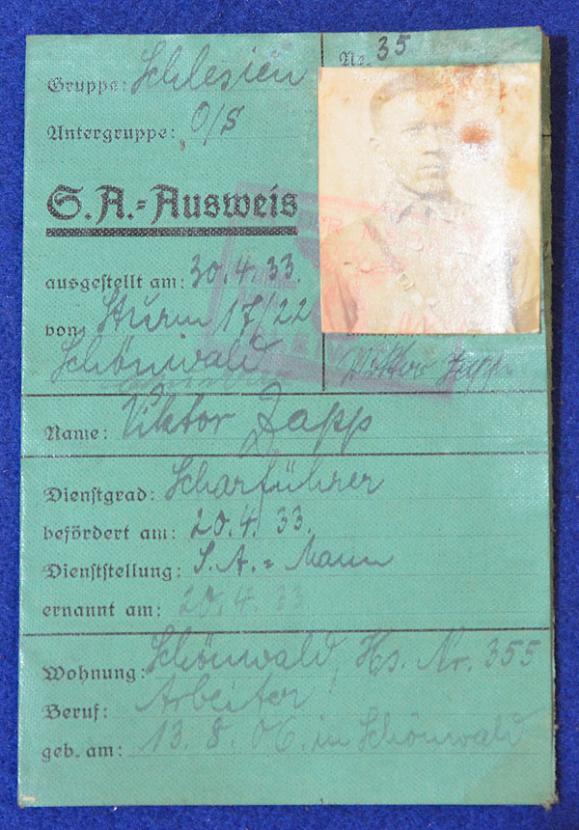 Gruppe: Schlesien
Nr. 35
Untergruppe: O/S
S.A.=Ausweis
ausgestellt am: 30.4.33.
von: Sturm 17/22
Schönwald
Name: Viktor Zapp
Dienstgrad: Scharführer
befördert am: 20.4.33.
Dienststellung: S.A.=Mann
ernannt am: 20.4.33
Wohnung: Schönwald, Hs. Nr. 355
Beruf: Arbeiter
geb. am: 13.8.06. in Schönwald